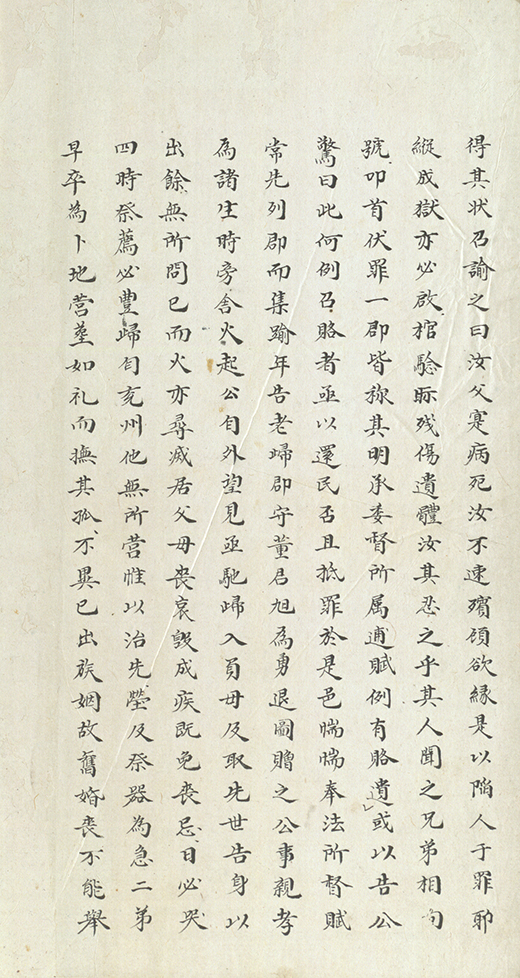 得其狀召諭之曰汝父寔病死汝不速殯顧欲緣是以陷人于罪耶
縱成獄亦必啟棺驗眎残傷遺體汝其忍之乎其人聞之兄弟相向
號叩首伏罪一郡皆称其明承委督所属逋賦例有賂遺或以告公
驚曰此何例召賂者亟以還民否且抵罪於是邑惴惴奉法所督賦
常先列郡而集踰年告老歸郡守董君旭為勇退圖贈之公事親孝
為諸生時旁舍火起公自外望見亟馳歸入負母及取先世告身以
出餘無所問已而火亦尋滅居父母喪哀毀成疾既免喪忌日必哭
四時祭薦必豐歸自兗州他無所营惟以治先塋及祭器為急二弟
早卒為卜地营葬如礼而撫其孤不異已出族姻故舊婚喪不能舉